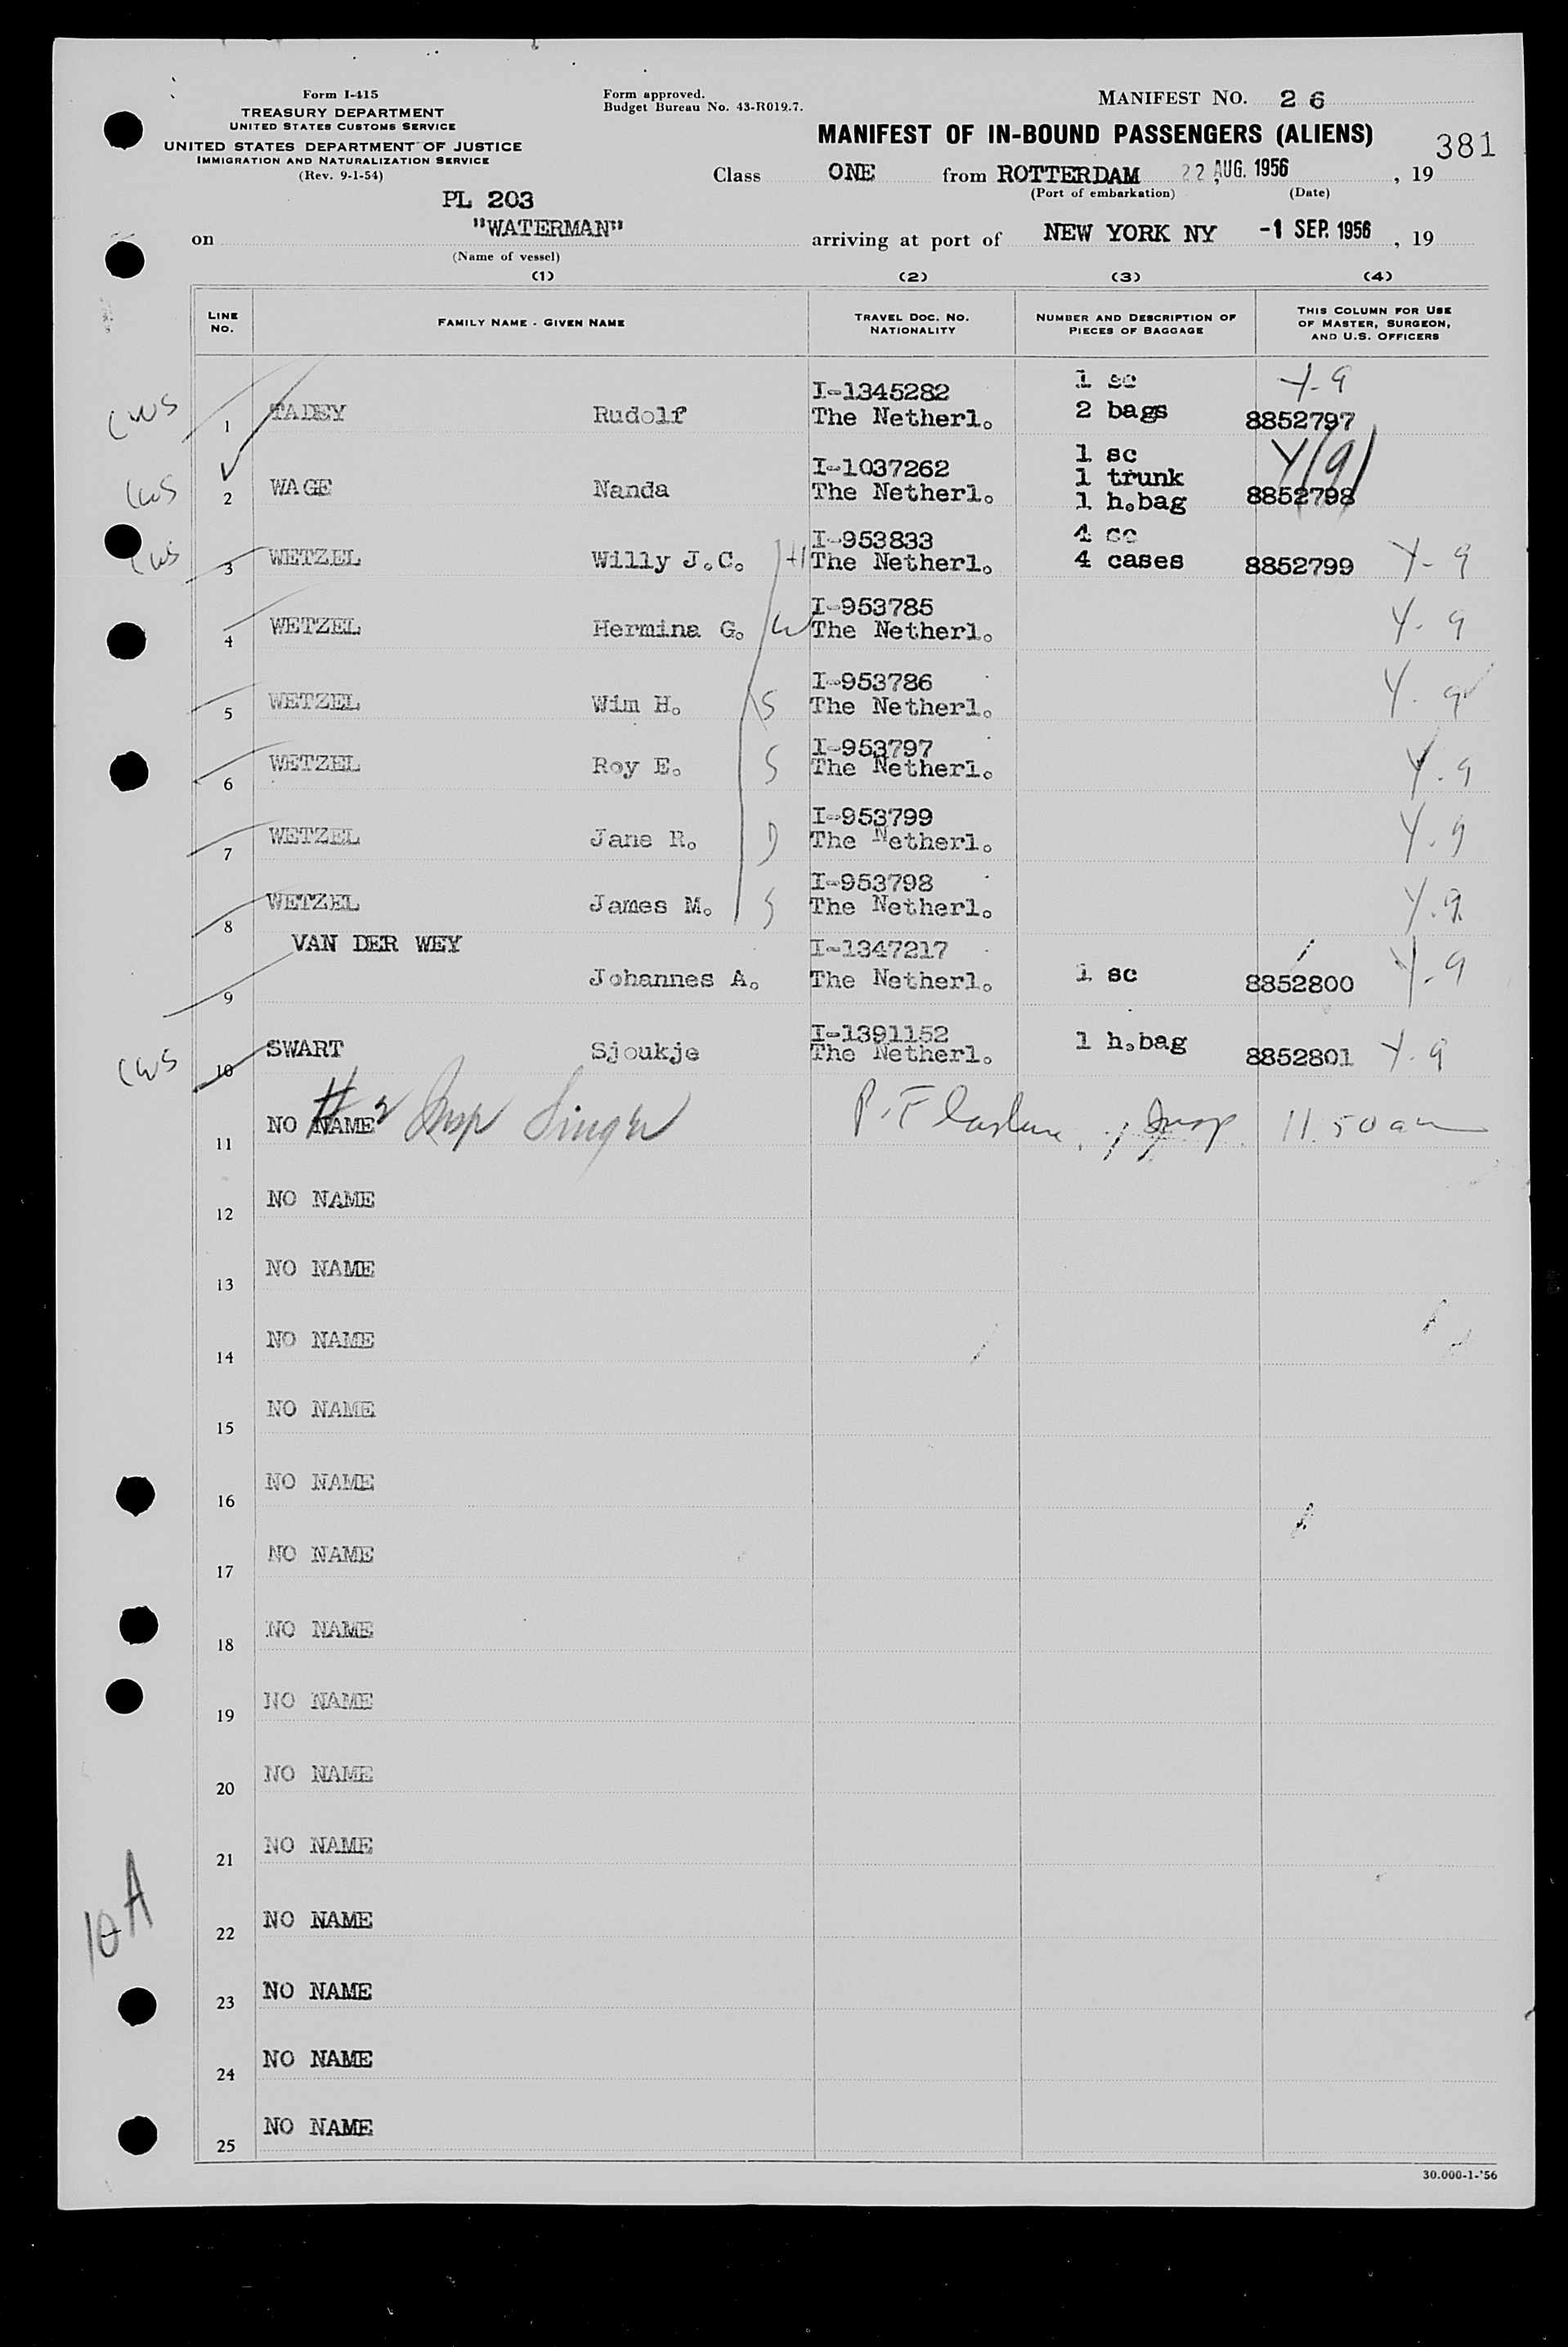 Form I-415
TREASURY DEPARTMENT
UNITED STATES CUSTOMS SERVICE
UNITED STATES DEPARTMENT OF JUSTICE
IMMIGRATION AND NATURALIZATION SERVICE
(Rev. 9-1-54)
Form approved.
Budget Bureau No. 43-R019.7.
MANIFEST NO. 26
MANIFEST OF IN-BOUND PASSENGERS (ALIENS)
381
Class ONE from ROTTERDAM 22 AUG. 1956, 19
(Port of embarkation) (Date)
PL 203
on "WATERMAN" arriving at port of NEW YORK NY -1 SEP. 1956, 19
(Name of vessel)
(1) (2) (3) (4)
LINE NO. FAMILY NAME - GIVEN NAME TRAVEL DOC. NO. NATIONALITY NUMBER AND DESCRIPTION OF PIECES OF BAGGAGE THIS COLUMN FOR USE OF MASTER, SURGEON, AND U.S. OFFICERS
I-1345282 1 sc Y-9
CWS 1 TADEY Rudolf The Netherl. 2 bags 8852797
I-1037262 1 sc Y(9)
1 trunk
CWS 2 WAGE Nanda The Netherl. 1 h.bag 8852798
I-953833 4 sc
CWS 3 WETZEL Willy J.C. H The Netherl. 4 cases 8852799 Y-9
I-953785
4 WETZEL Hermina G. W The Netherl. Y-9
I-953786
5 WETZEL Wim H. S The Netherl. Y.9
I-953797
6 WETZEL Roy E. S The Netherl. Y.9
I-953799
7 WETZEL Jane R. D The Netherl. Y.9
I-953798
8 WETZEL James M. S The Netherl. Y.9
VAN DER WEY I-1347217
9 Johannes A. The Netherl. 1 sc 8852800 Y-9
I-1391152
CWS 10 SWART Sjoukje The Netherl. 1 h.bag 8852801 Y.9
11 NO NAME #2 Insp Singer Insp. 11.50 am
12 NO NAME
13 NO NAME
14 NO NAME
15 NO NAME
16 NO NAME
17 NO NAME
18 NO NAME
19 NO NAME
20 NO NAME
21 NO NAME
10A
22 NO NAME
23 NO NAME
24 NO NAME
25 NO NAME
30.000-1-'56